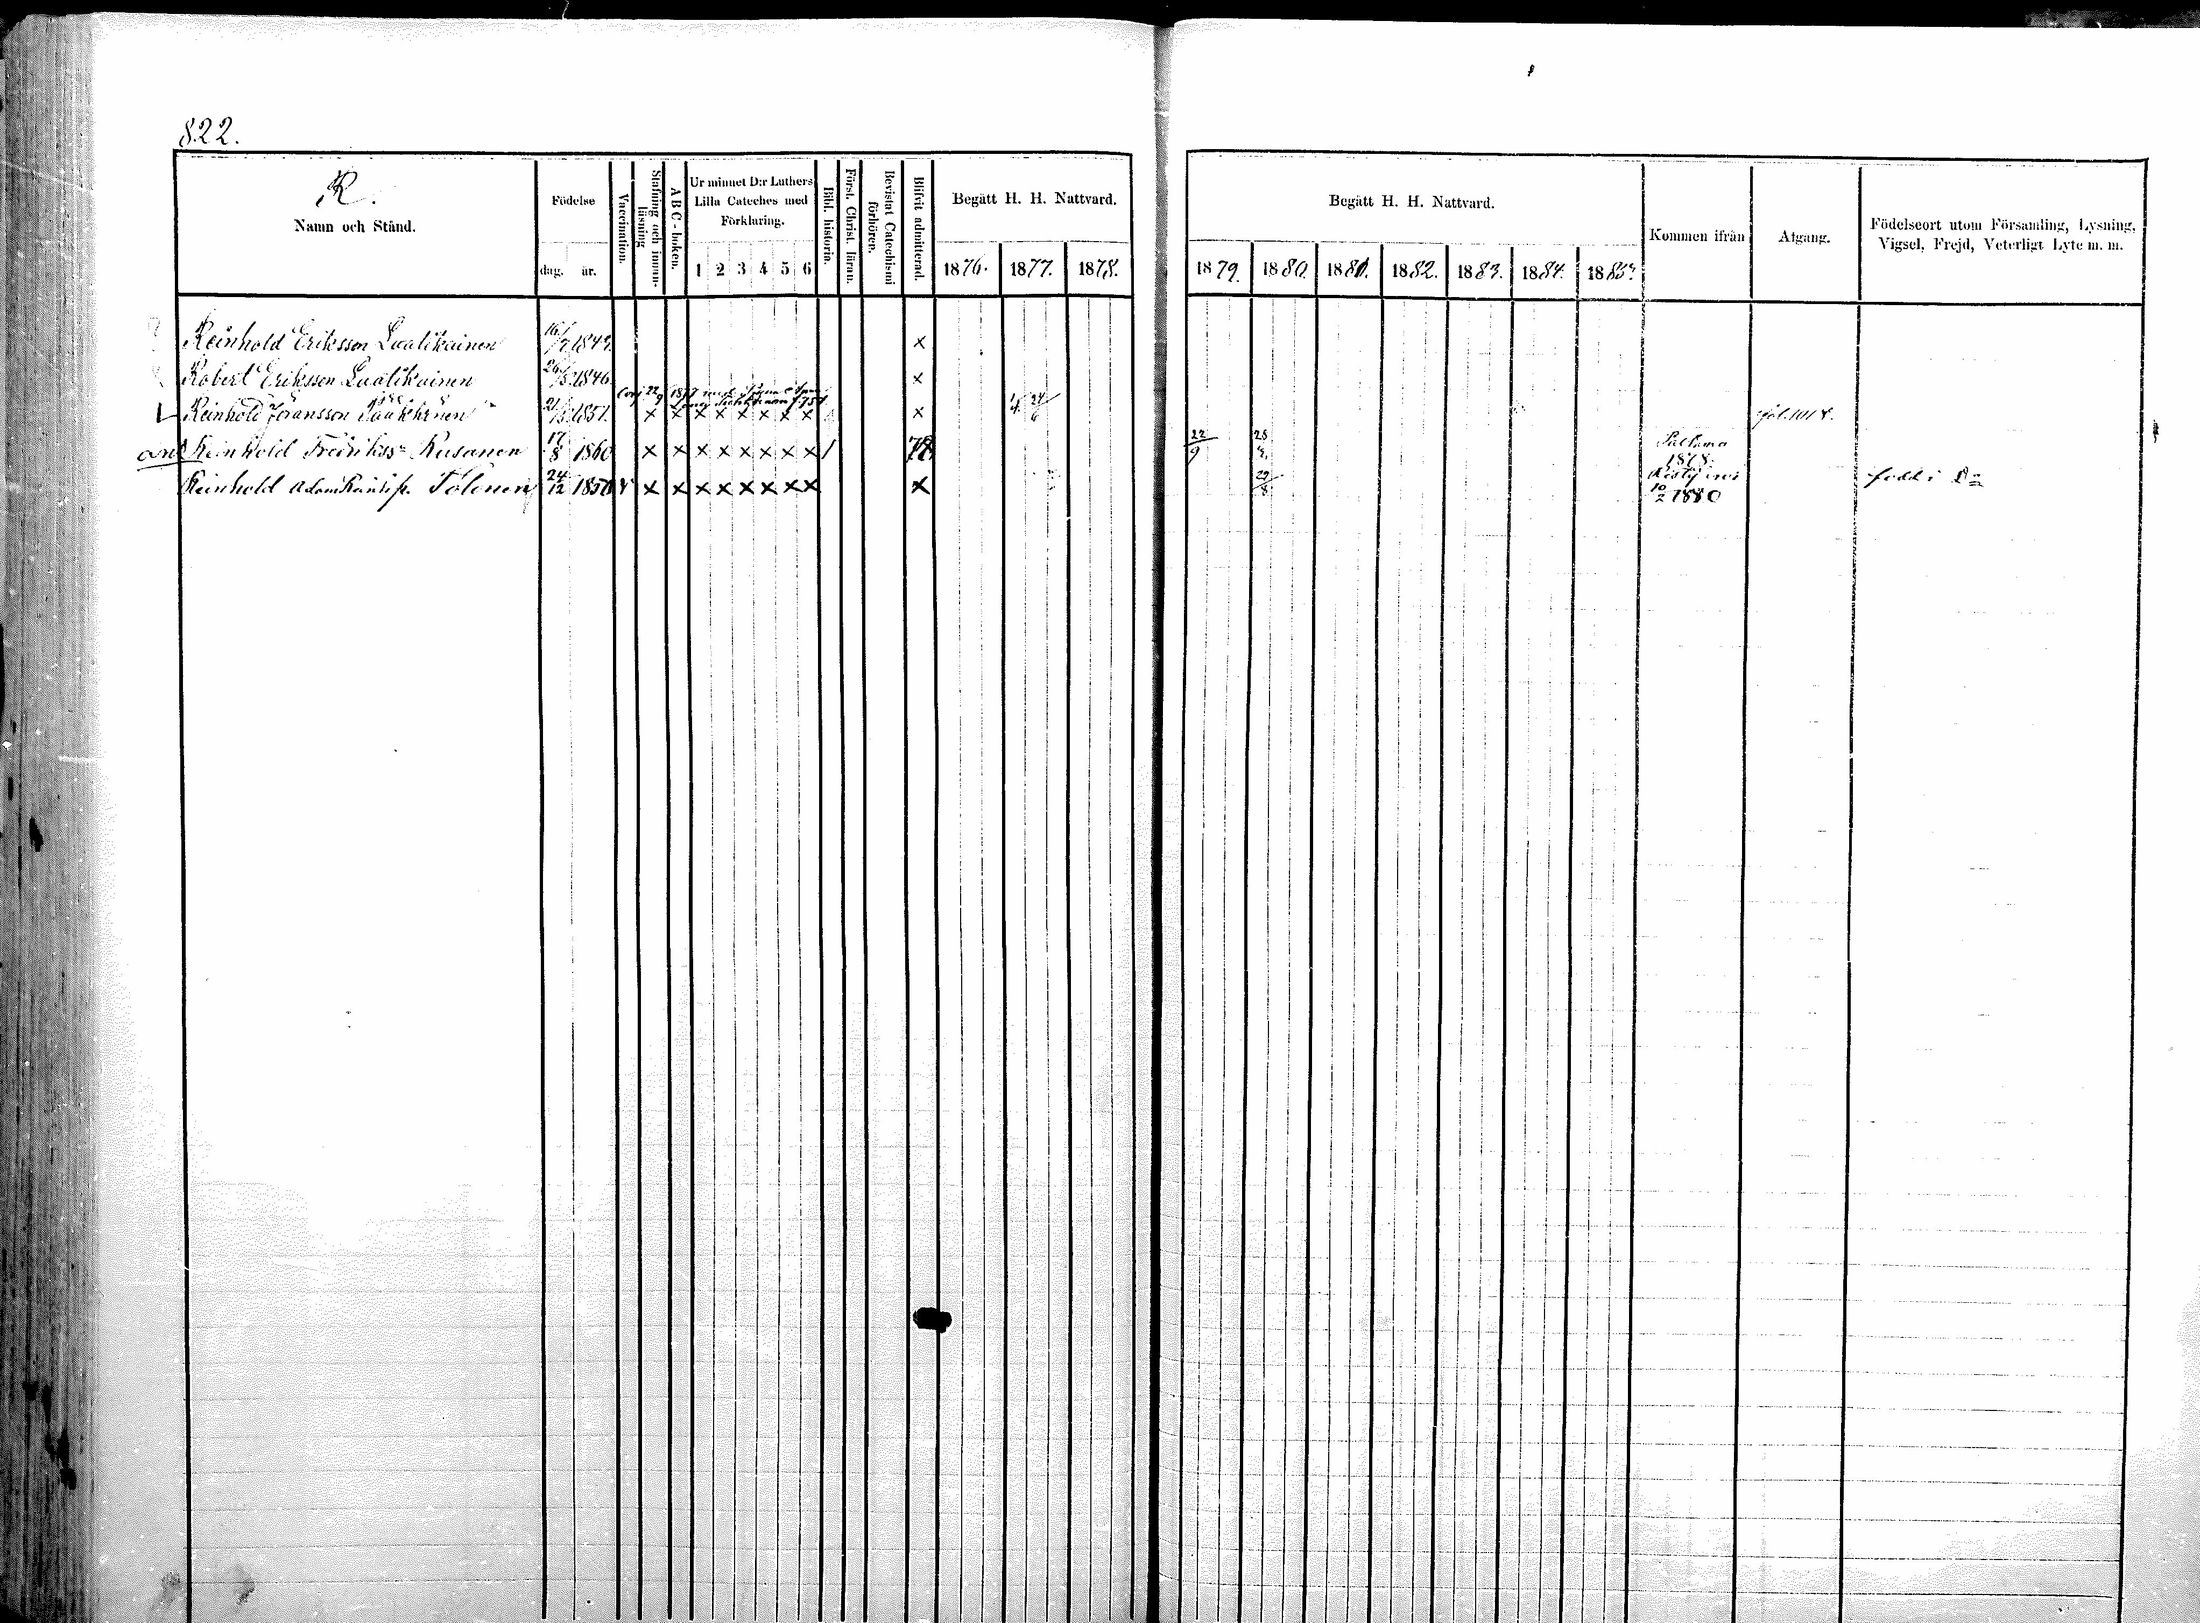 822.
R.
Namn och Stånd.
Födelse
dag. år.
Vaccination.
Stafning och innanläsning
ABC-boken.
Ur minnet D:r Luthers Lilla Cateches med Förklaring.
1 2 3 4 5 6
Bibl. historia.
Först. Christ. läran.
Bevistat Catechismi förhören.
Blifvit admitterad.
Begått H. H. Nattvard.
1876. 1877. 1878.
Begått H. H. Nattvard.
1879. 1880. 1881. 1882. 1883. 1884. 1885.
Kommen ifrån
Afgang.
Födelseort utom Församling, Lysning, Vigsel, Frejd, Veterligt Lyte m. m.
Reinhold Eriksson Luatikainen 16/7 1849. ×
Robert Eriksson Luatikainen 26/5 1846. ×
Reinhold Göransson 21/5 1851. × × × × × × × × × 24/6 fol. 1014.
Reinhold Fredrikss: Rusanen 17/8 1860 × × × × × × × × 78 22/9 28 Paltamo 1878.
Reinhold Adam Tolonen 24/12 1850 v × × × × × × × × × 29/8 10/2 1880 född i